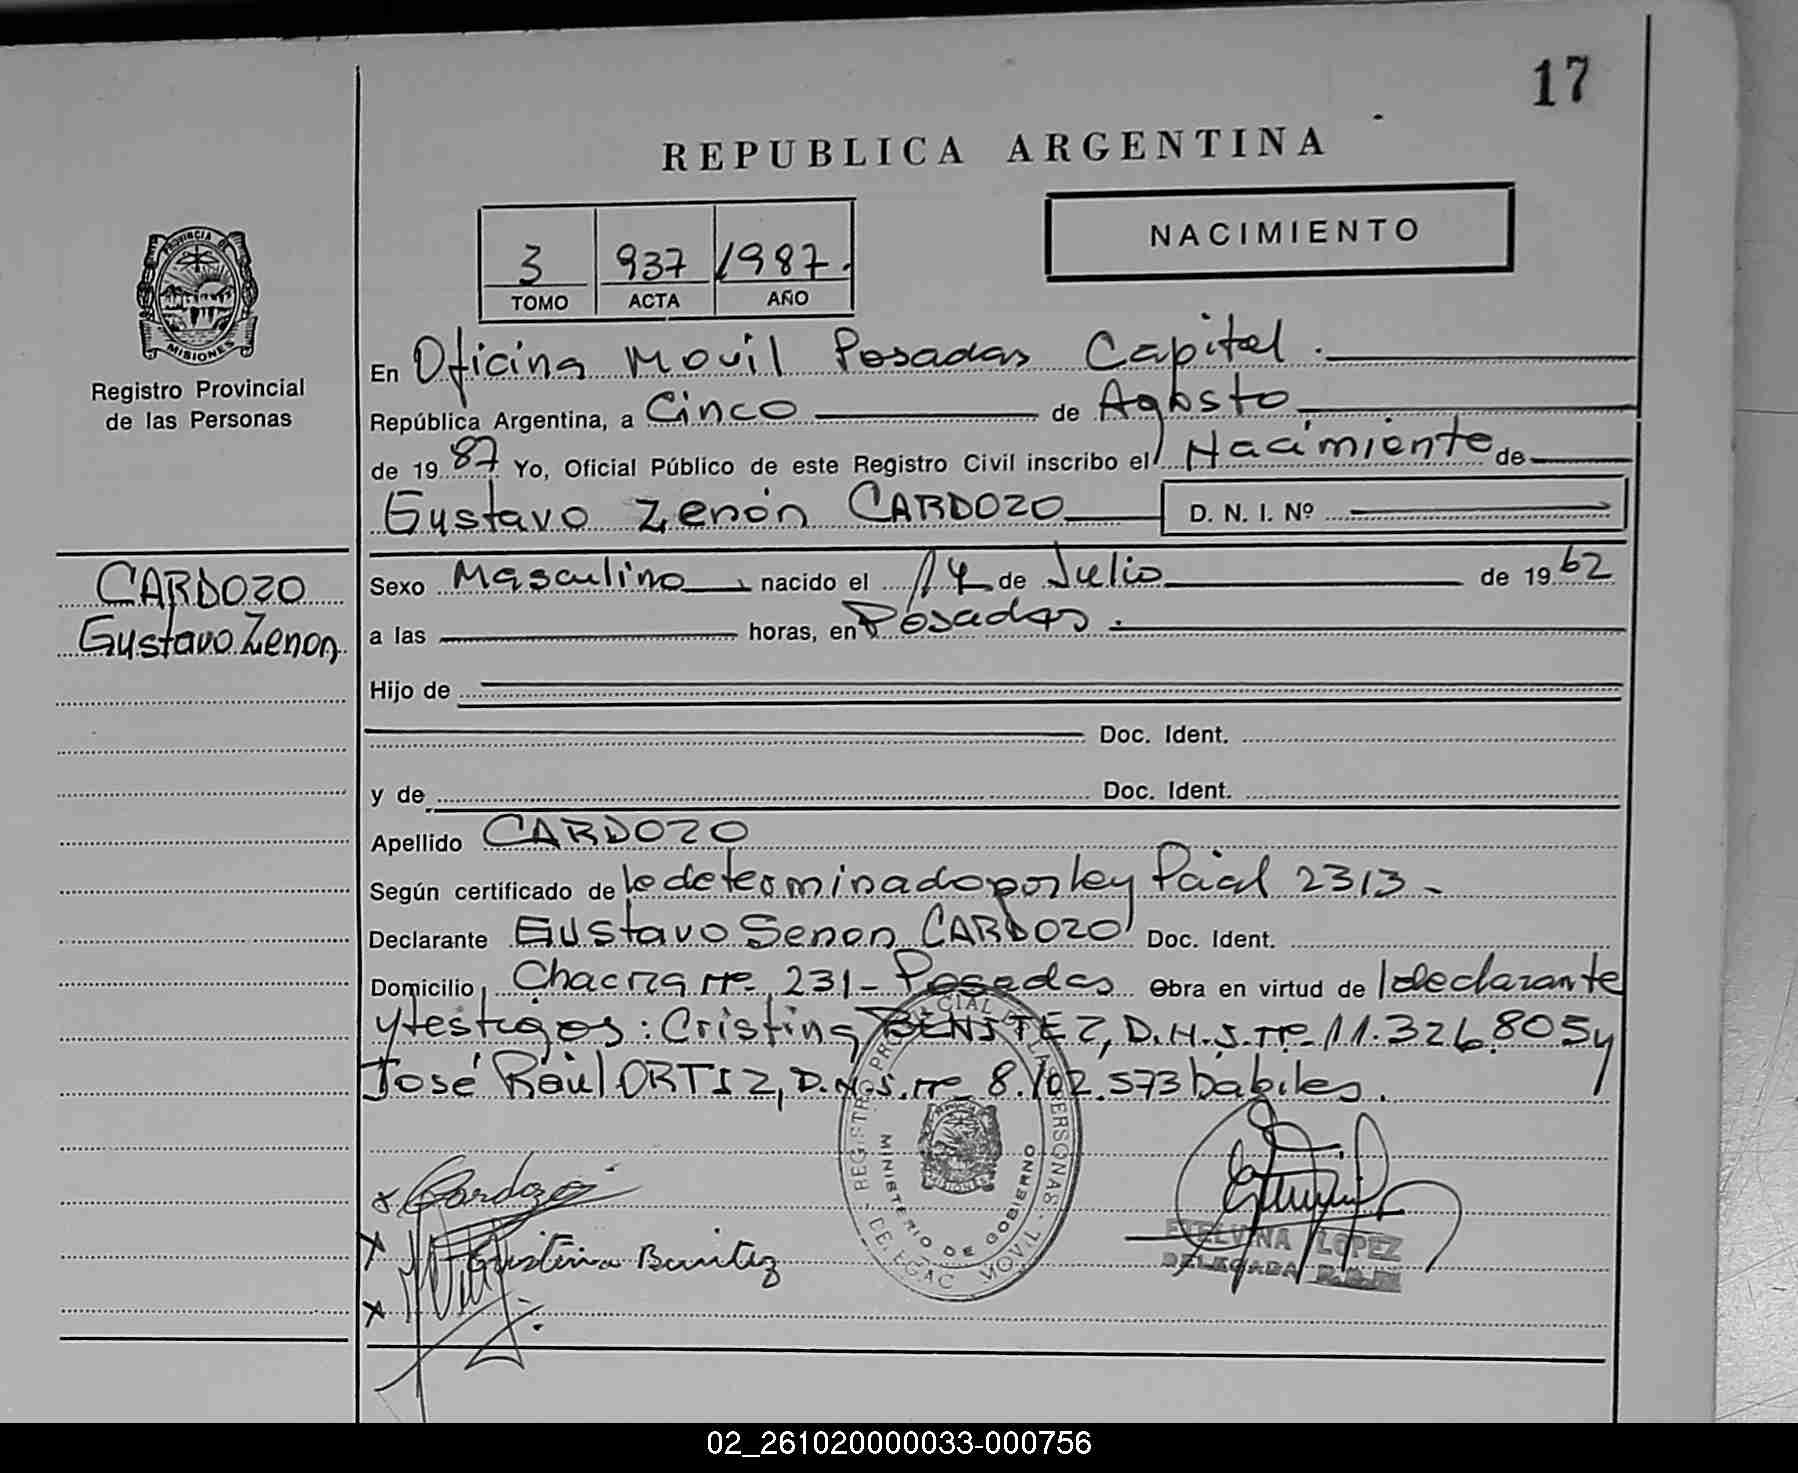 17
REPUBLICA ARGENTINA
NACIMIENTO
3 937 1987.
TOMO ACTA AÑO
PROVINCIA DE
MISIONES
Registro Provincial
de las Personas
En Oficina Movil Posadas Capital.
República Argentina, a Cinco de Agosto
de 1987 Yo, Oficial Público de este Registro Civil inscribo el Nacimiento de
Gustavo Zenón CARDOZO D. N. I. Nº
CARDOZO
Gustavo Zenon
Sexo Masculino nacido el 14 de Julio de 1962
a las horas, en Posadas.
Hijo de
Doc. Ident.
y de Doc. Ident.
Apellido CARDOZO
Según certificado de lo determinado por ley Pcial 2313-
Declarante Gustavo Senon CARDOZO Doc. Ident.
Domicilio Chacra nº 231- Posadas Obra en virtud de l declarante
y testigos: Cristina BENITEZ, D.N.I. nº 11.326.805 y
José Raúl ORTIZ, D.N.I. nº 8.102.573 hábiles.
REGISTRO PROVINCIAL DE LAS PERSONAS
MINISTERIO DE GOBIERNO
DELEGAC MOVIL
x Cardozo
x Cristina Benitez
x
ETELVINA LOPEZ
DELEGADA
02_261020000033-000756